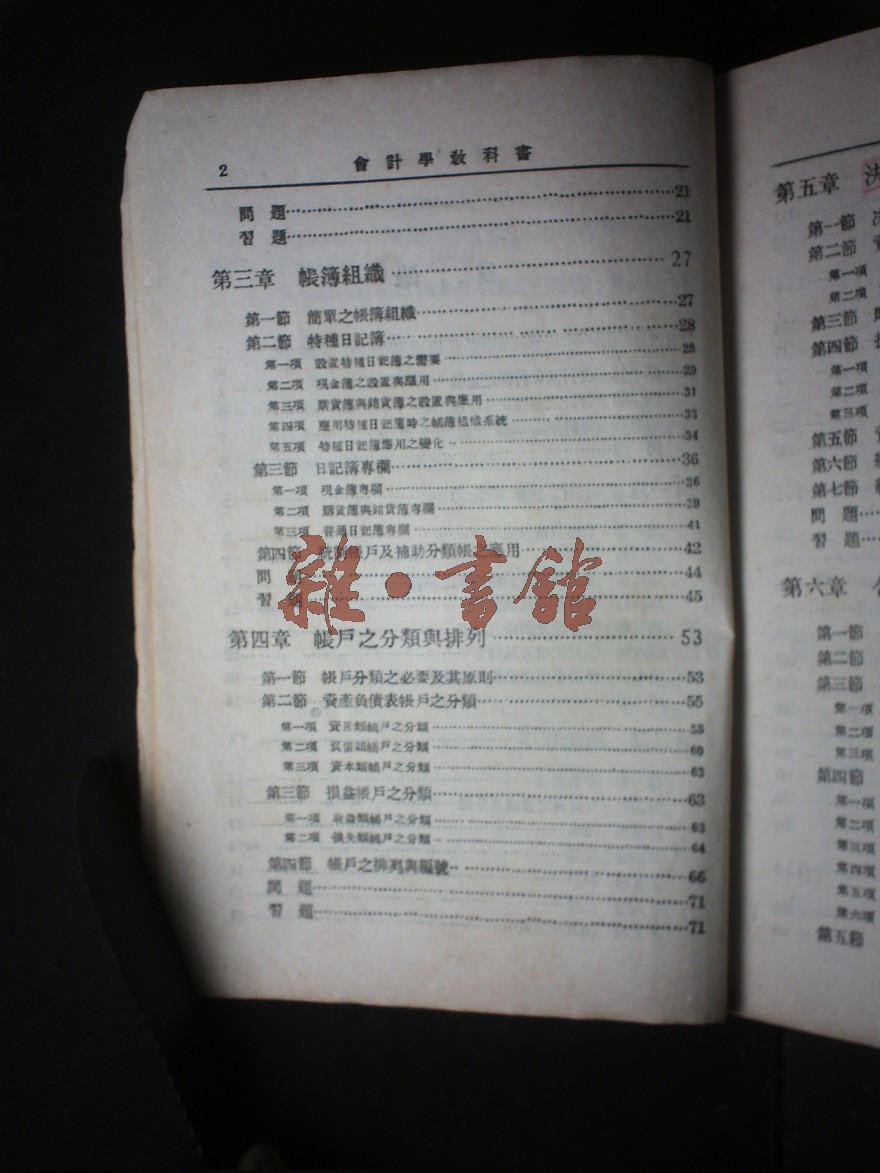 2 會計學教科書
問題 21
習題 21
第三章 帳簿組織 27
第一節 簡單之帳簿組織 27
第二節 特種日記簿 28
第一項 設置特種日記簿之需要 28
第二項 現金簿之設置與應用 29
第三項 購貨簿與銷貨簿之設置與應用 31
第四項 應用特種日記簿時之帳簿組織系統 33
第五項 特種日記簿應用之變化 34
第三節 日記簿專欄 36
第一項 現金簿專欄 36
第二項 購貨簿與銷貨簿專欄 39
第三項 普通日記簿專欄 41
第四節 統制帳戶及補助分類帳之應用 42
問題 44
習題 45
雜·書館
第四章 帳戶之分類與排列 53
第一節 帳戶分類之必要及其原則 53
第二節 資產負債表帳戶之分類 55
第一項 資產類帳戶之分類 55
第二項 負債類帳戶之分類 60
第三項 資本類帳戶之分類 63
第三節 損益帳戶之分類 63
第一項 收益類帳戶之分類 63
第二項 損失類帳戶之分類 64
第四節 帳戶之排列與編號 66
問題 71
習題 71
第五章 決
第一節 決
第二節 資
第一項
第二項
第三節
第四節
第一項
第二項
第三項
第五節
第六節
第七節
問題
習題
第六章
第一節
第二節
第三節
第一項
第二項
第三項
第四節
第一項
第二項
第三項
第四項
第五項
第六項
第五節